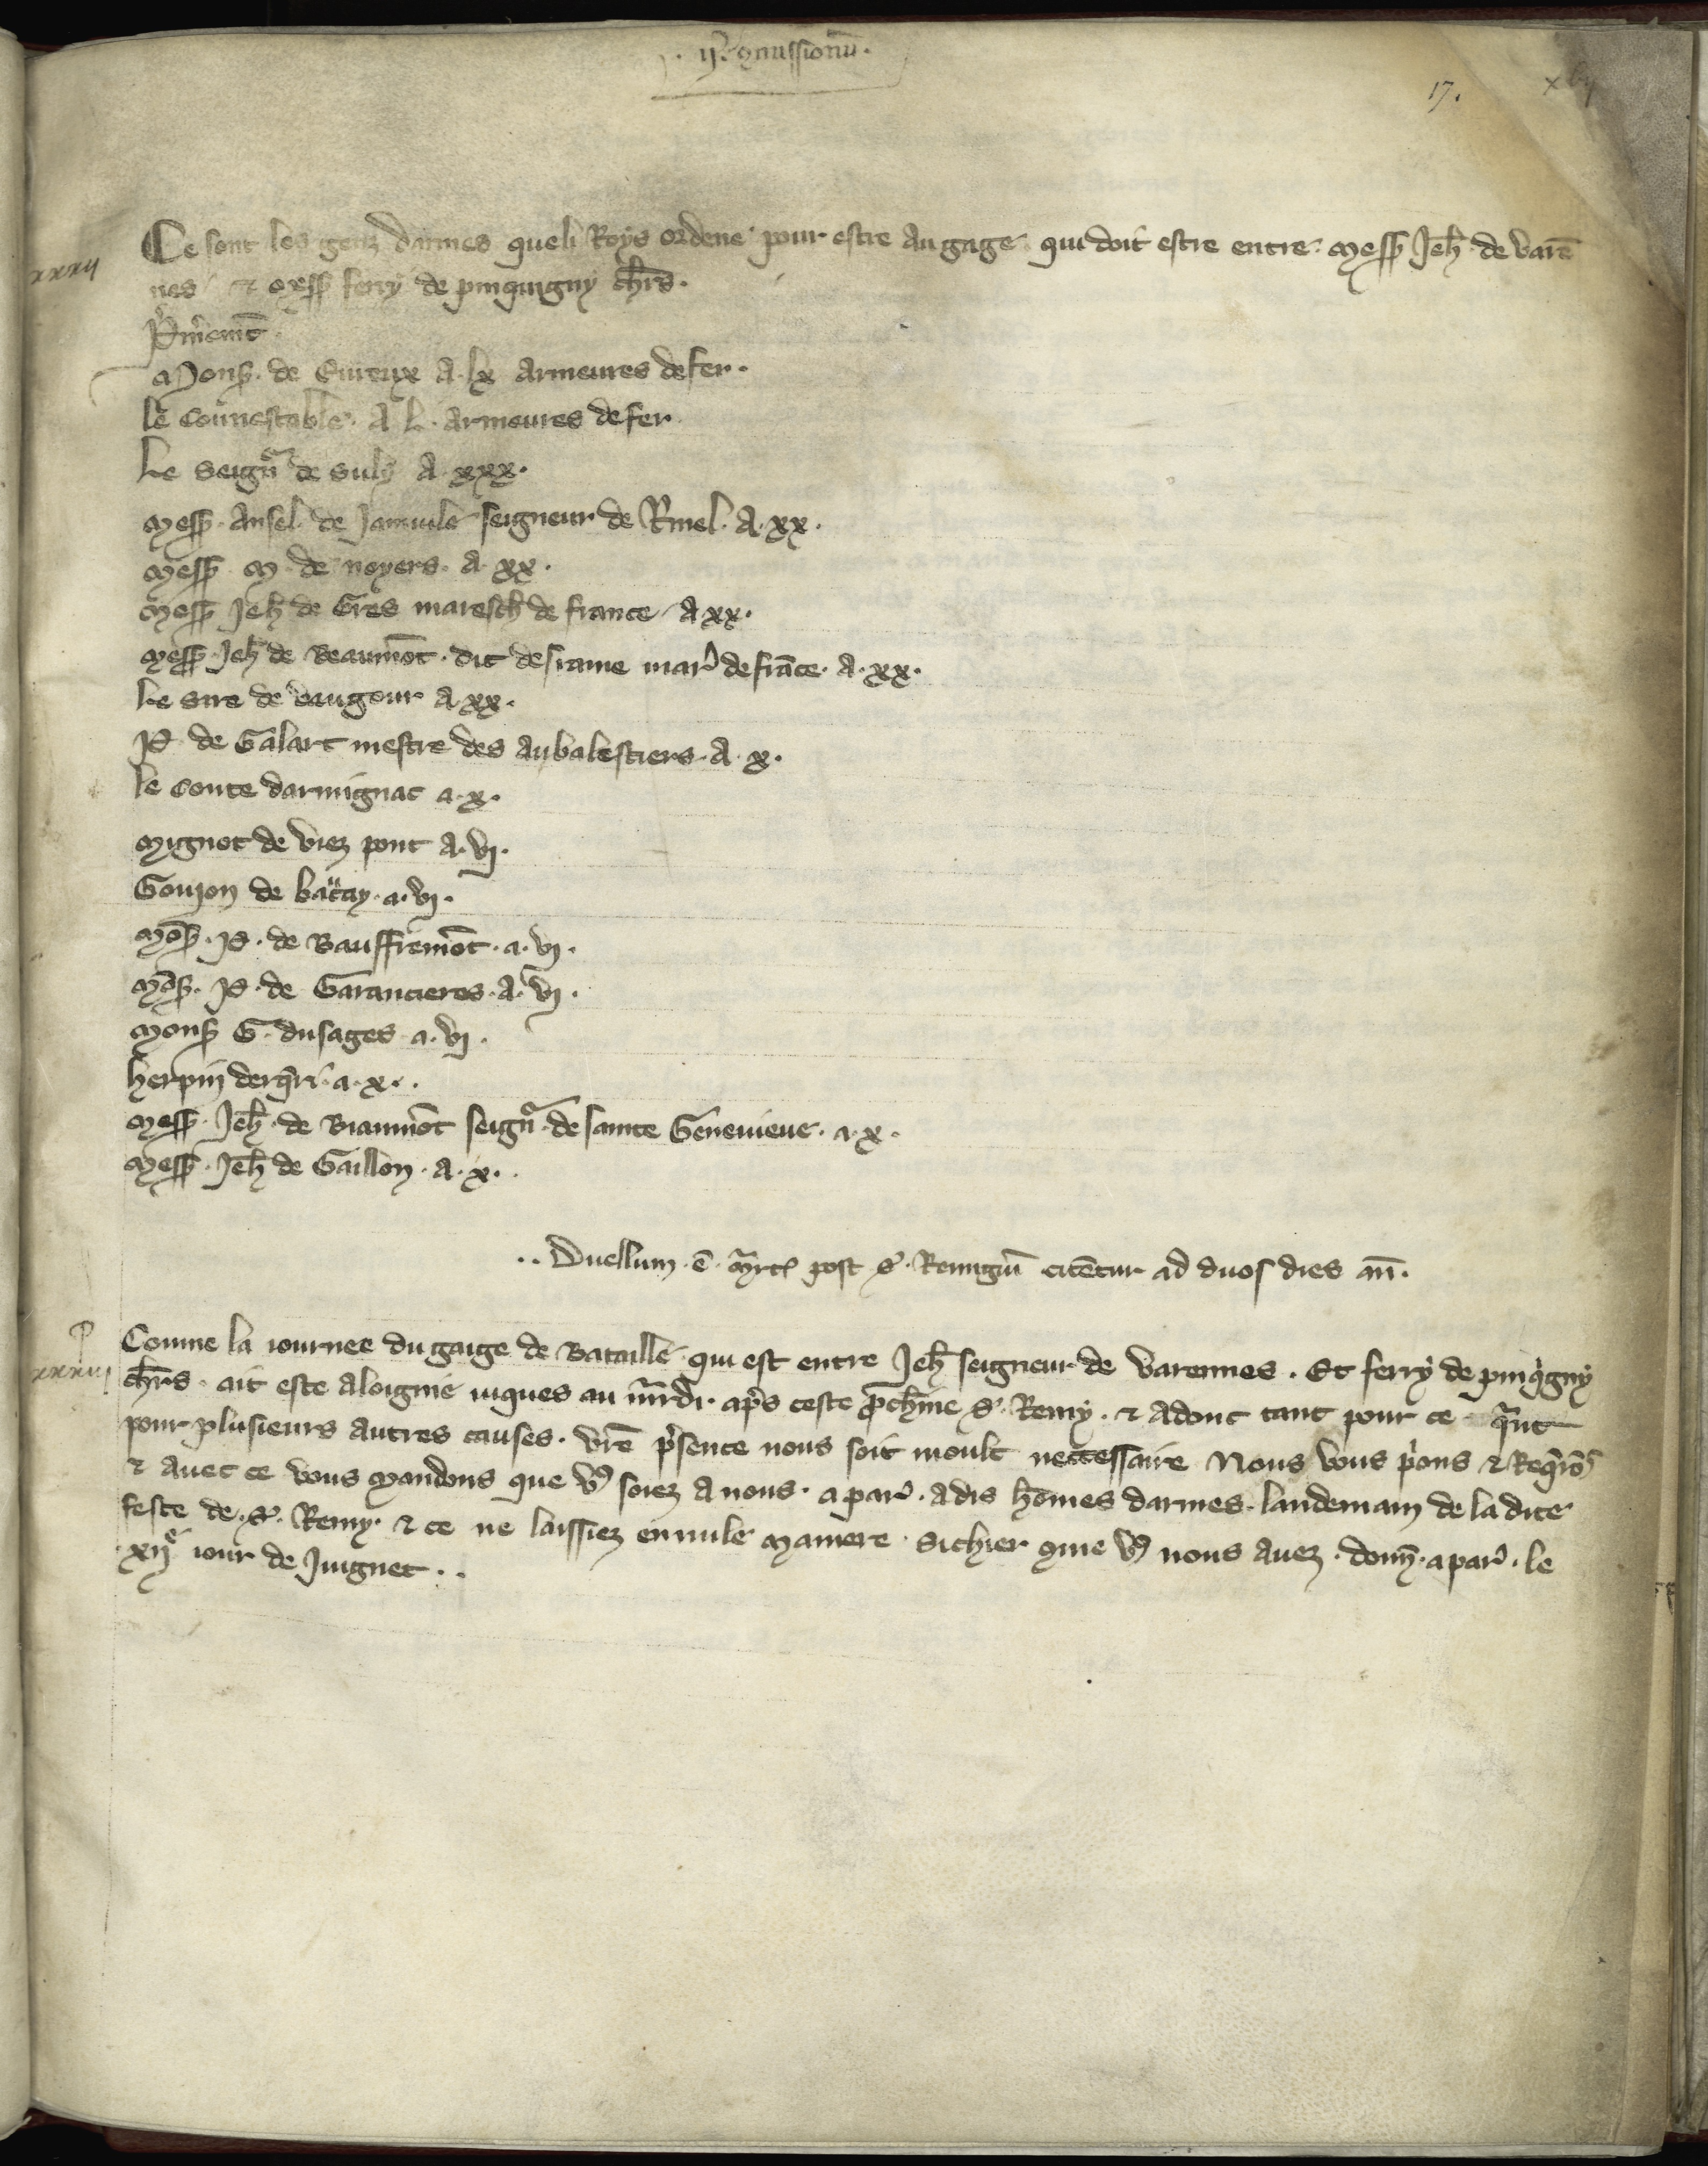 17.
xxxij
Ce sont les genz darmes que li Roys ordene pour estre au gage qui doit estre entre mess Jeh̄ de varē
nes ⁊ mess ferry de pinquigny ch̄rs.
P̓m̓emt̄
Mons. de Evreux A. lx armeures de fer.
le Connestable. A L. armeures de fer.
Le seign̄r de suly A. xxx.
mess. Ansel de Jainvile seigneur de Rinel. A. xx.
mess. M. de noyers. A. xx.
mess Jeh̄ de Gres maresch̄ de france. A xx.
mess. Jeh̄ de Beaumōt. dit desrame mar̓ de frāce. A. xx.
Le sire de vaugour A xx.
P. de Galart mestre des aubalestiers. A. x.
le Conte darmignac a. x.
Mignot de viez pont A. vj.
Goujon de baucay. a. vj.
Mōs. P. de Bauffremōt. a. vj.
Mōs. P. de Garancieres. A. vj.
Mons G. dusages a. vj.
herpin derq̄ri. a. x..
mess. Jeh̄. de Biaumōt seign̄r. de sainte Genevieve. a. x.
mess. Jeh̄ de Gaillon. A. x..
.. Duellum. ē. m̄rt̄ post s̓. Remigiū citētur ad duos dies an̄.
xxxiij
Comme la journee du gaige de Bataille qui est entre Jeh̄ seigneur de varennes. Et ferry de pinq̓gny
ch̄rs. ait este aloignie juques au m̄rdi. ap̄s ceste p̄ch̄ine s̓. Remy. ⁊ adonc tant pour ce q̄nt
pour plusieurs autres causes. vr̄e p̓sence nous soit moult neccessaire Nous vous p̓ons ⁊ Req̄rōs
⁊ avec ce vous mandons que vꝰ soiez a nous. a par̓. a dis hōmes darmes. landemain de la dite
feste de. s̓. Remy. ⁊ ce ne laissiez en nule maniere. sichier ꝯme vꝰ nous avez. dom̄. a par̓. le
xijᵉ jour de Juignet..